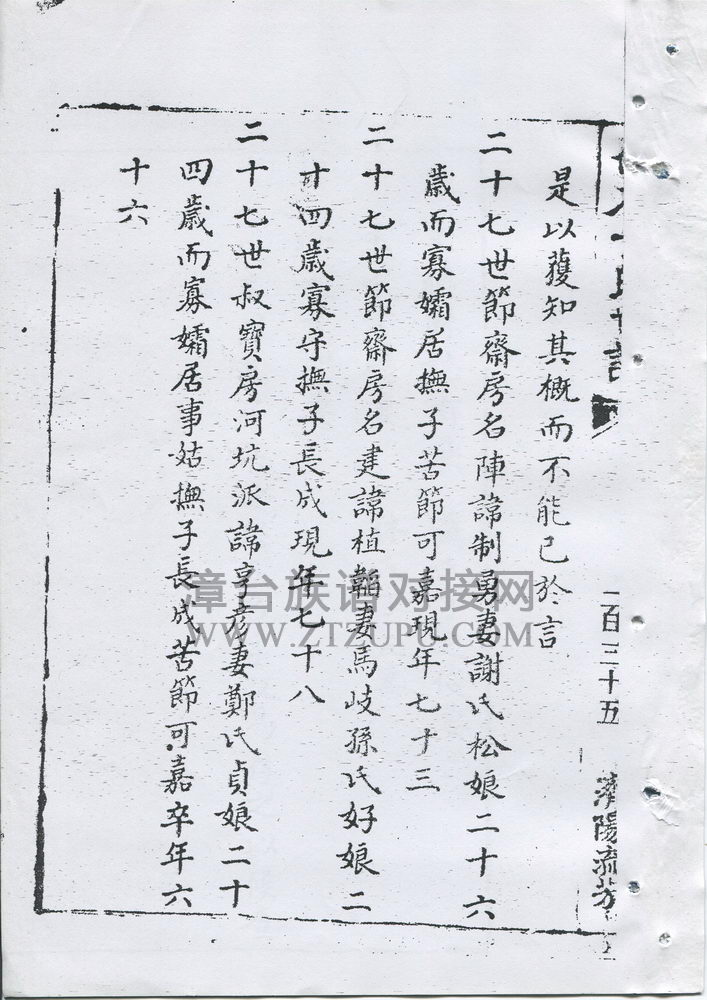 是以獲知其概而不能已於言
二十七世節齋房名陣諱制勇妻謝氏松娘二十六
歲而寡孀居撫子苦節可嘉現年七十三
二十七世節齋房名建諱植韜妻馬岐孫氏好娘二
十四歲寡守撫子長成現年七十八
二十七世叔寶房河坑派諱亨彥妻鄭氏貞娘二十
四歲而寡孀居事姑撫子長成苦節可嘉卒年六
十六
一百三十五
濟陽流芳
漳台族谱对接网
WWW.ZTZUPU.COM